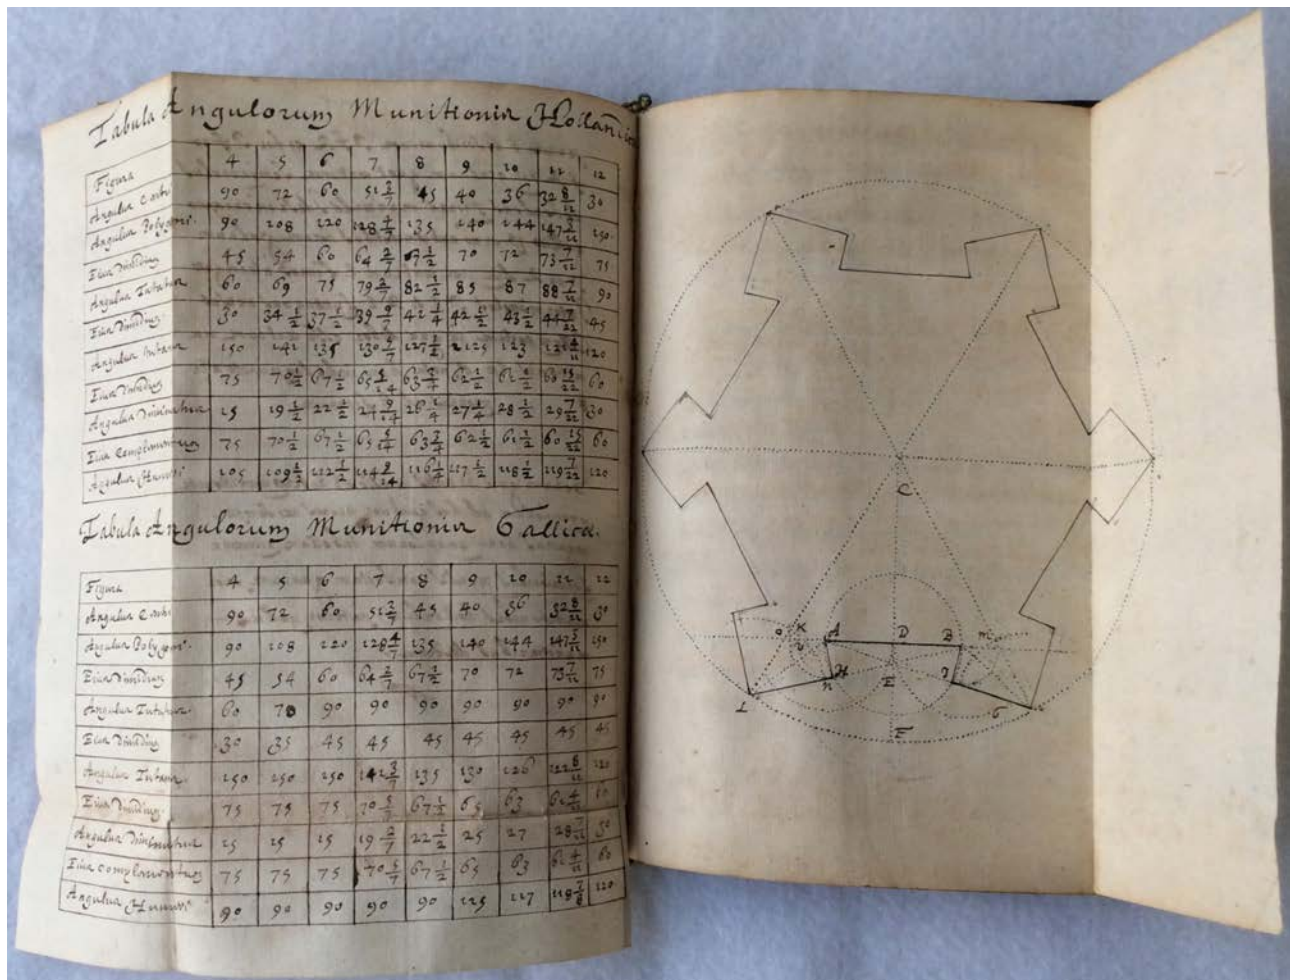 Tabula Angulorum Munitionis Hollandica
Figura 4 5 6 7 8 9 10 11 12
Angulus Centri 90 72 60 51 3/7 45 40 36 32 8/11 30
Angulus Polygoni. 90 108 120 128 4/7 135 140 144 147 3/11 150
Eius Dimidius 45 54 60 64 2/7 67 1/2 70 72 73 7/11 75
Angulus Tutatus 60 69 75 79 2/7 82 1/2 85 87 88 7/11 90
Eius Dimidius 30 34 1/2 37 1/2 39 41 1/4 42 1/2 43 1/2 44 7/22 45
Angulus Tutans 150 141 135 130 5/7 127 1/2 125 123 121 4/11 120
Eius Dimidius 75 70 1/2 67 1/2 65 5/14 63 3/4 62 1/2 61 1/2 60 15/22 60
Angulus Diminutus 15 19 1/2 22 1/2 24 9/14 26 1/4 27 1/4 28 1/2 29 7/22 30
Eius Complementum 75 70 1/2 67 1/2 65 5/14 63 3/4 62 1/2 61 1/2 60 15/22 60
Angulus Humeri 105 109 1/2 112 1/2 114 9/14 116 1/4 117 1/2 118 1/2 119 7/22 120
Tabula Angulorum Munitionis Gallica.
Figura 4 5 6 7 8 9 10 11 12
Angulus Centri 90 72 60 51 3/7 45 40 36 32 8/11 30
Angulus Polygoni. 90 108 120 128 4/7 135 140 144 147 3/11 150
Eius Dimidius 45 54 60 64 2/7 67 1/2 70 72 73 7/11 75
Angulus Tutatus 60 70 90 90 90 90 90 90 90
Eius Dimidius 30 35 45 45 45 45 45 45 45
Angulus Tutans 150 150 150 141 3/7 135 130 126 122 8/11 120
Eius Dimidius 75 75 75 70 5/7 67 1/2 65 63 61 4/11 60
Angulus Diminutus 15 15 15 19 2/7 22 1/2 25 27 28 7/11 30
Eius Complementum 75 75 75 70 5/7 67 1/2 65 63 61 4/11 60
Angulus Humeri 90 90 90 90 90 115 117 118 7/8 120
C
o K A D B m
H n E I
L G
F